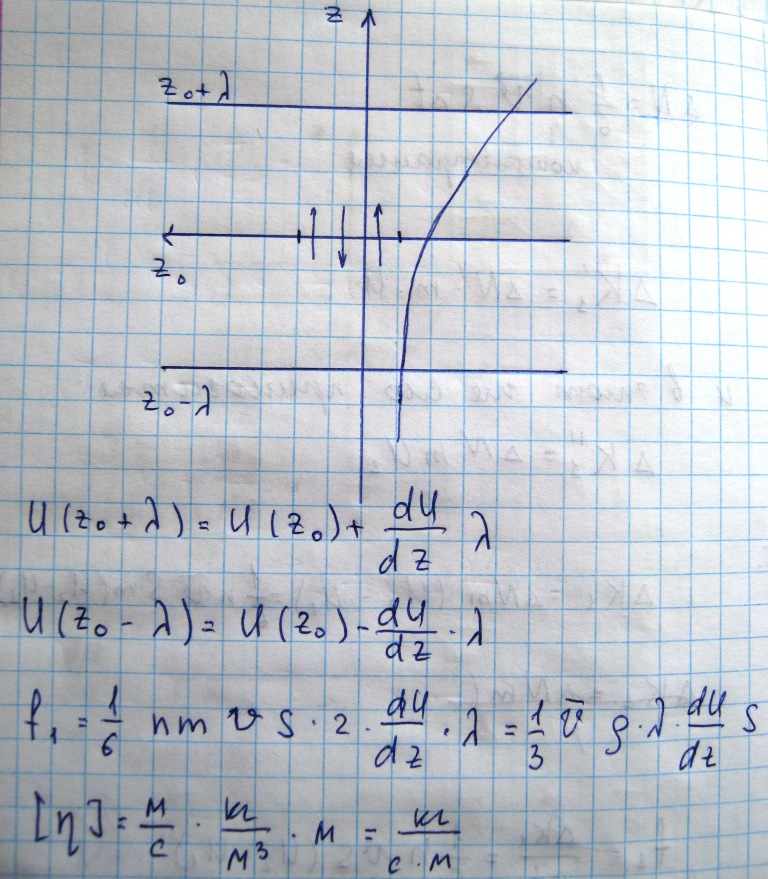 z
z₀+λ
z₀
z₀-λ
U(z₀+λ)=U(z₀)+ dU/dz λ
U(z₀-λ)=U(z₀)-dU/dz·λ
f₁=1/6 nm v S·2·dU/dz·λ=1/3 v̄ ρ·λ·dU/dz S
[η]=м/с·кг/м³·м=кг/с·м